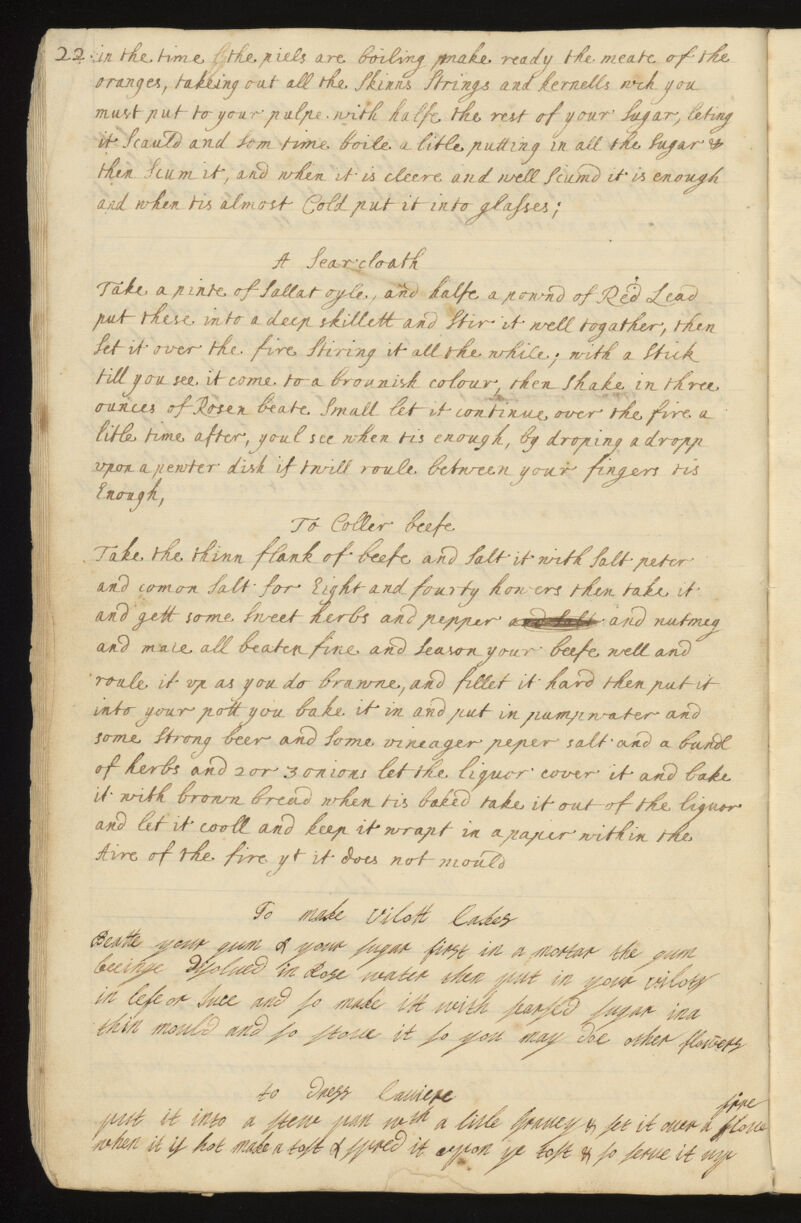 22 in the time the piels are boiling make ready the meate of the
oranges, takeing out all the Skinns Strings and kernells wch you
must put to your pulpe with halfe the rest of your Sugar, leting
it Scauld and Som time boile a litle putting in all the Sugar &
then Scum it, and when it is cleere and well Scumd it is enough
and when tis almost Cold put it into glasses;
A Sear cloath
Take a pinte of Sallat oyle, and halfe a pownd of Red Lead
put these into a deep skillett and Stir it well togather, then
Set it over the fire Stiring it all the while; with a Stick
till you see it come to a brounish colour, then Shake in three
ounces of Rosen beate Small let it continue over the fire a
litle time after, youl see when tis enough, by droping a dropp
vpon a pewter dish if twill roule between your fingers tis
Enough,
To Coller beefe
Take the thinn flank of beefe and Salt it with Salt peter
and comon Salt for Eight and fourty howers then take it
and gett some Sweet herbs and pepper and Salt and nutmeg
and mace all beaten fine and Season your beefe well and
roule it vp as you do brawne, and fillet it hard then put it
into your pott you bake it in and put in pumpwater and
some Strong beer and Some vineager peper salt and a bundl
of herbs and 2 or 3 onions let the liquor cover it and bake
it with brown bread when tis baked take it out of the liquor
and let it cooll and keep it wrapt in a paper within the
Aire of the fire yt it does not mould
To make vilott Cakes
Beatte your gum & your sugar first in a mortar the gum
beeinge disolued in Rose water then put in your vilots
in lefe or Juce and so make itt with searsed sugar in a
thin mould and so stoue it so you may doe other flowers
to dress Caviere
put it into a stew pan with a litle Gravey & set it over a slow fire
when it is hot make a tost & spred it upon ye tost & so serve it up